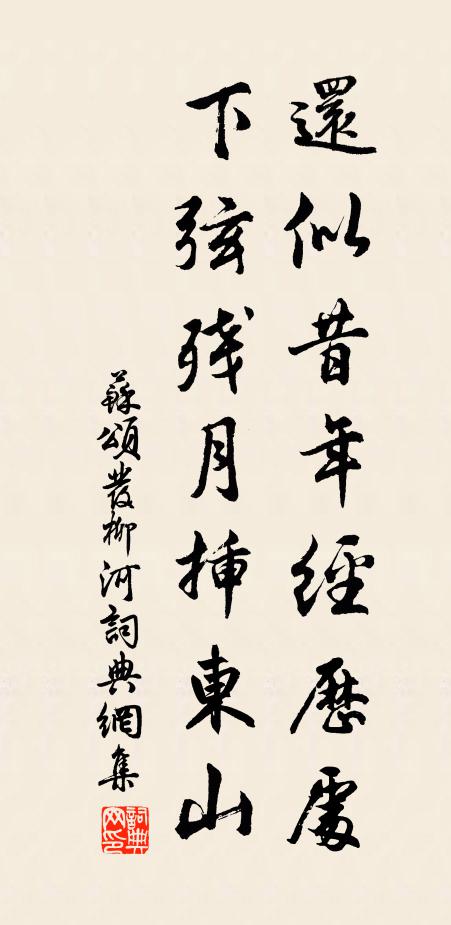 還似昔年經歷處
下弦残月挿東山
蘇頌發柳河詞典網集
詞典网印